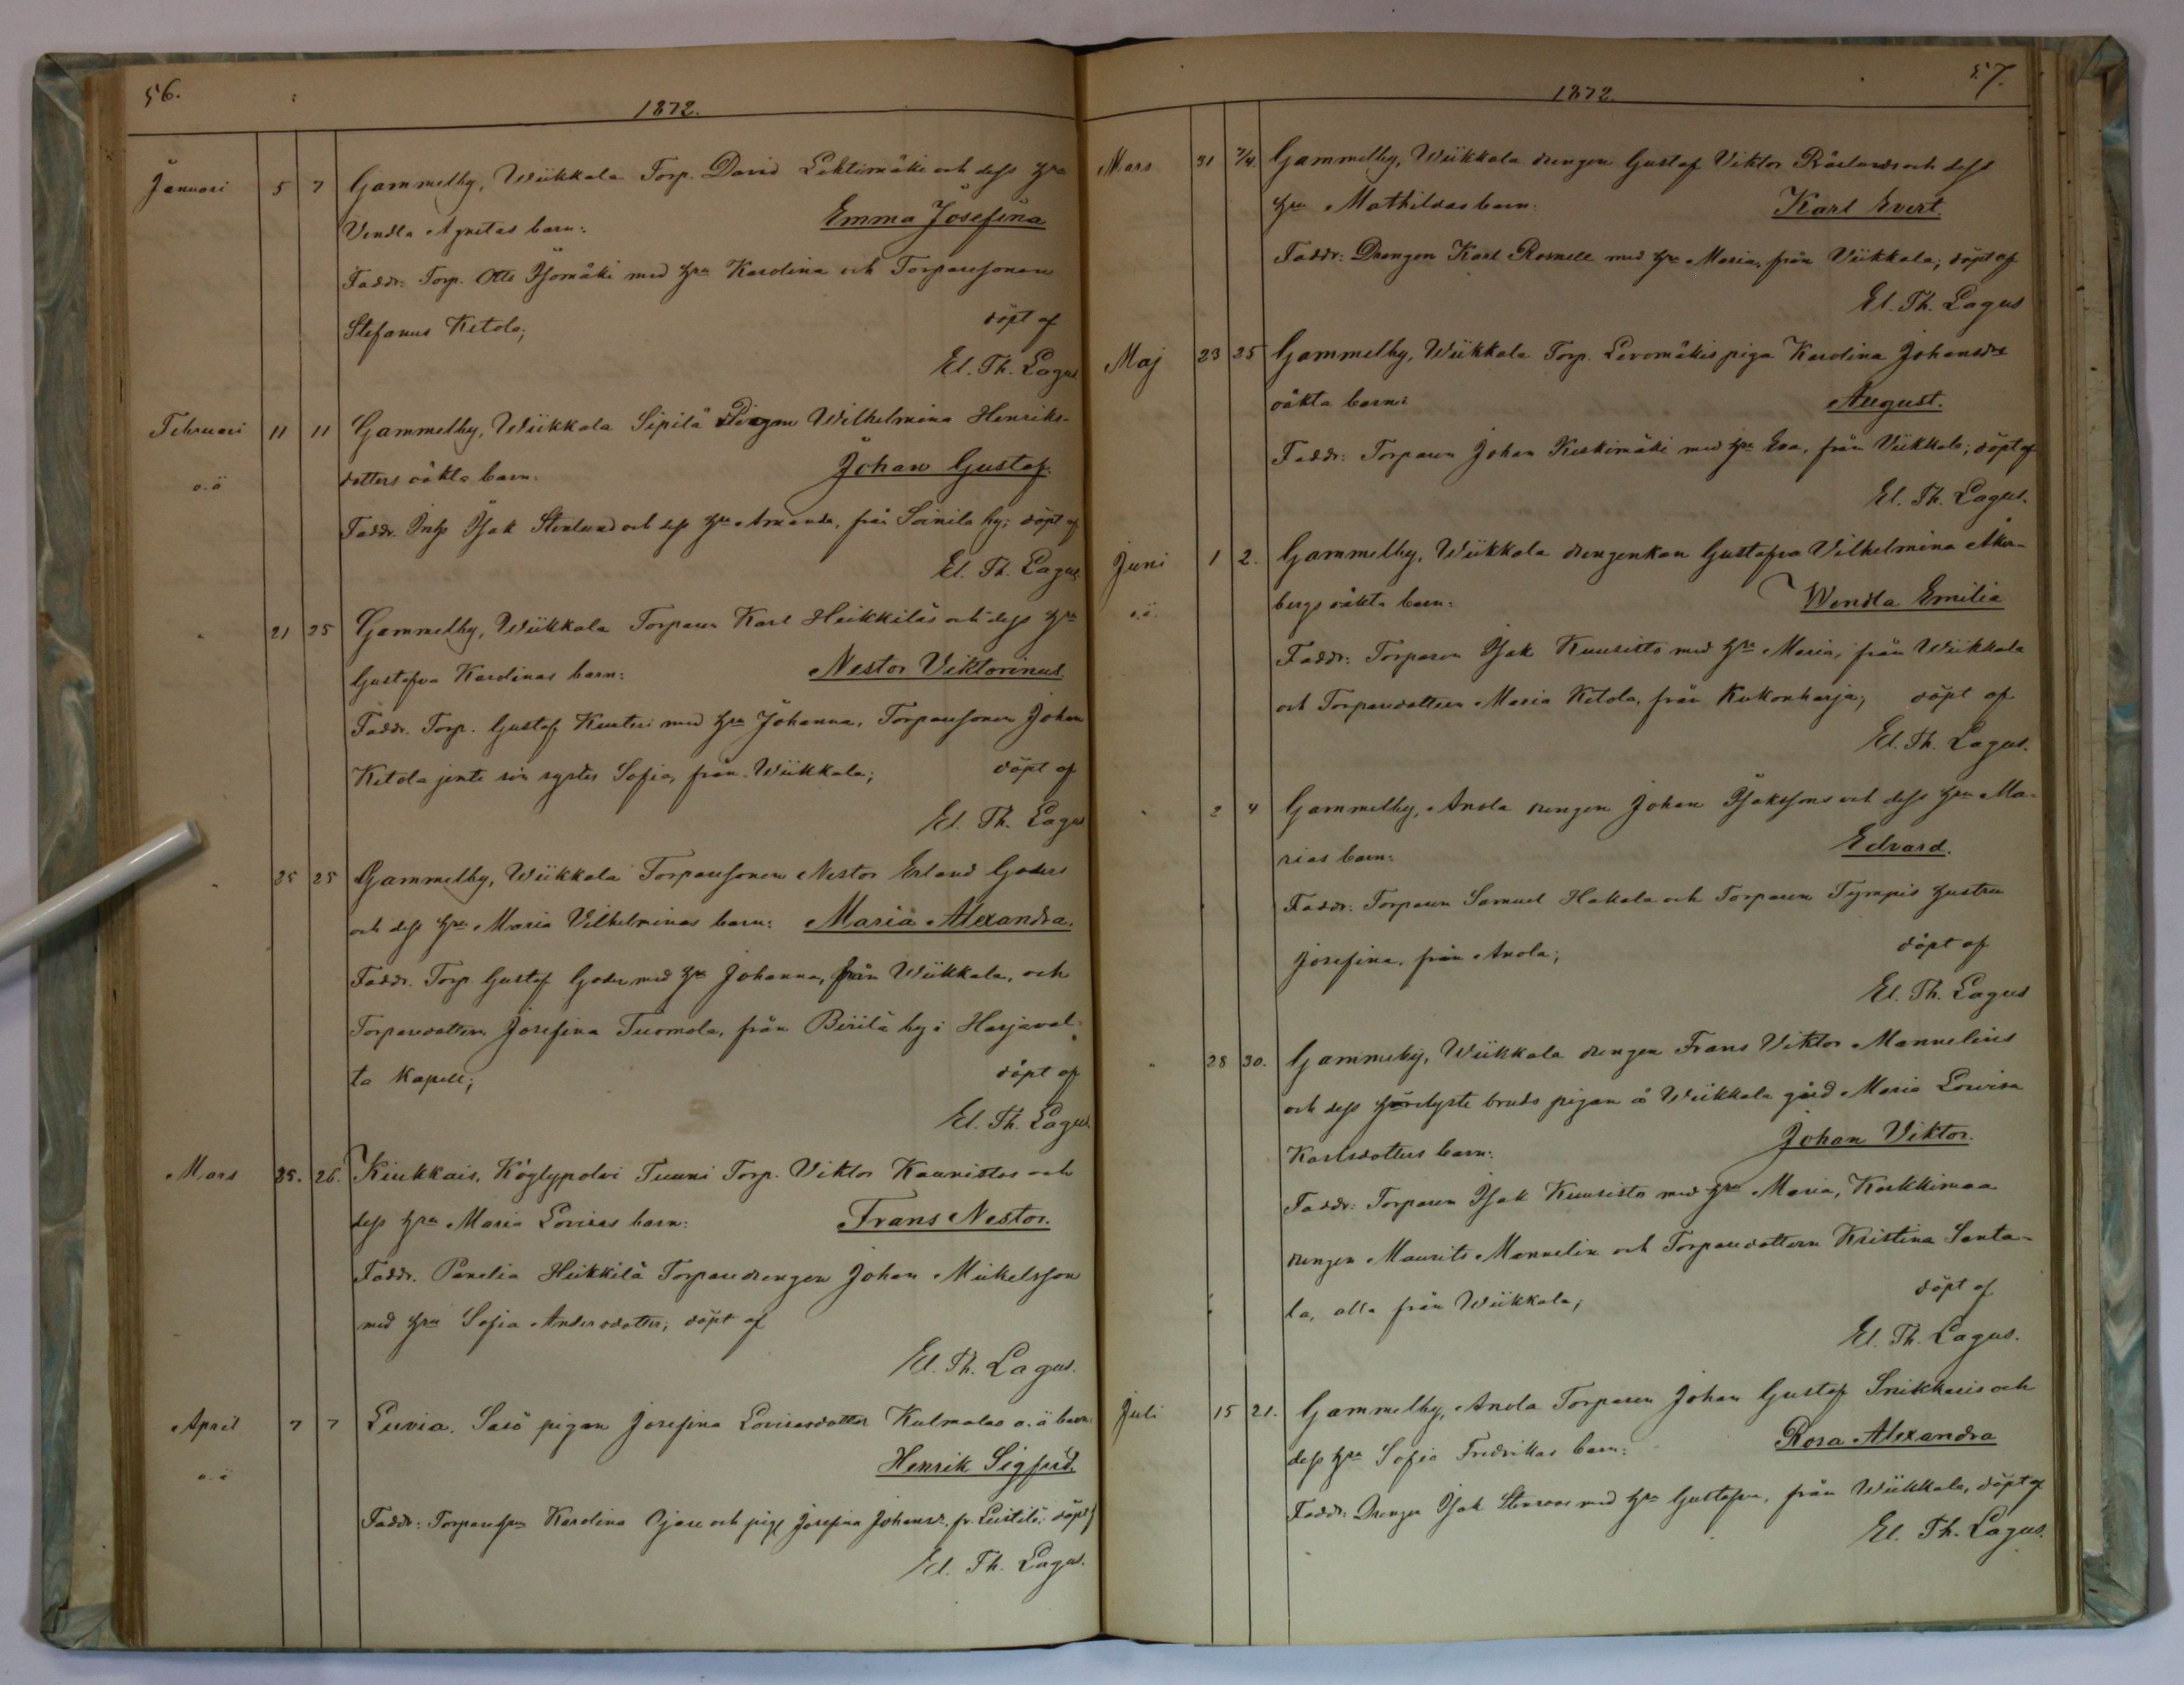 56.
1872.
Januari 5 7 Gammelby, Wiikkala Torp. David Lehtimäki och dess hru
Vendla Agnetas barn: Emma Josefina
Faddr: Torp. Otto Isomäki med hru Karolina och Torparesonen
Stefanus Ketola; döpt af
El. Th. Lagus
Februari 11 11 Gammelby, Wiikkala Sipilä Pigan Wilhelmina Henriks-
o.ä dotters oäkta barn: Johan Gustaf.
Faddr. Inhs Isak Stenlund och dess hru Amanda, från Soinila by; döpt af
El. Th. Lagus.
" 21 25 Gammelby, Wiikkala Torparen Karl Heikkiläs och dess hru
Gustafva Karolinas barn: Nestor Viktorinus.
Faddr. Torp. Gustaf Kunteri med hru Johanna, Torparesonen Johan
Ketola jemte sin syster Sofia, från Wiikkala; döpt af
El. Th. Lagus
" 25 25 Gammelby, Wiikkala Torparesonen Nestor Erland Goders
och dess hru Maria Vilhelminas barn: Maria Alexandra.
Faddr. Torp. Gustaf Goder med hru Johanna, från Wiikkala, och
Torparedottern Josefina Tuomola, från Pirilä by i Harjaval-
ta Kapell; döpt af
El. Th. Lagus.
Mars 25. 26. Kiukkais, Köylypolvi Tuuni Torp. Viktor Kaunistos och
dess hru Maria Lovisas barn: Frans Nestor.
Faddr. Panelia Heikkilä Torparedrengen Johan Mikelsson
med hru Sofia Andersdotter; döpt af
El. Th. Lagus.
April 7 7 Luvia, Sasö pigan Josefina Lovisasdotter Kulmalas o.ä barn:
o.ä Henrik Sigfrid.
Faddr: Torparehru Karolina Ojare och pig. Josefina Johansd. fr. Leistilä: döpt af
El. Th. Lagus.
57.
1872.
Mars 31 7/4. Gammelby, Wiikkala drengen Gustaf Viktor och dess
hru Mathildas barn: Karl Evert.
Faddr: Drengen Karl Rosnell med hru Maria, från Viikkala; döpt af
El. Th. Lagus
Maj 23 25 Gammelby, Wiikkala Torp. Levomäkis piga Karolina Johansdrs
oäkta barn: August.
Faddr: Torparen Johan Keskimäki med hru Eva, från Viikkala; döpt af
El. Th. Lagus.
Juni 1 2. Gammelby, Wiikkala drengenkan Gustafva Vilhelmina Åker-
o.ä. bergs oäkta barn: Wendla Emilia
Faddr: Torparen Isak Kuusisto med hru Maria, från Wiikkala
och Torparedottern Maria Ketola, från Kukonharja; döpt af
El. Th. Lagus.
" 2 4 Gammelby, Anola drengen Johan Isakssons och dess hru Ma-
rias barn: Edvard.
Faddr: Torparen Samuel Hakala och Torparen Tympis hustru
Josefina, från Anola; döpt af
El. Th. Lagus
" 28 30. Gammelby, Wiikkala drengen Frans Viktor Mannelius
och dess förelyste bruds pigan å Wiikkala gård Maria Lovisa
Karlsdotters barn: Johan Viktor.
Faddr: Torparen Isak Kuusisto med hru Maria, Korkkimaa
drengen Maurits Mannelin och Torparedottern Kristina Santa-
la, alla från Wiikkala; döpt af
El. Th. Lagus.
Juli 15 21. Gammelby, Anola Torparen Johan Gustaf Snikkaris och
dess hru Sofia Fredrikas barn: Rosa Alexandra
Faddr: Drengen Isak Stenroos med hru Gustafva, från Wiikkala, döpt af
El. Th. Lagus.